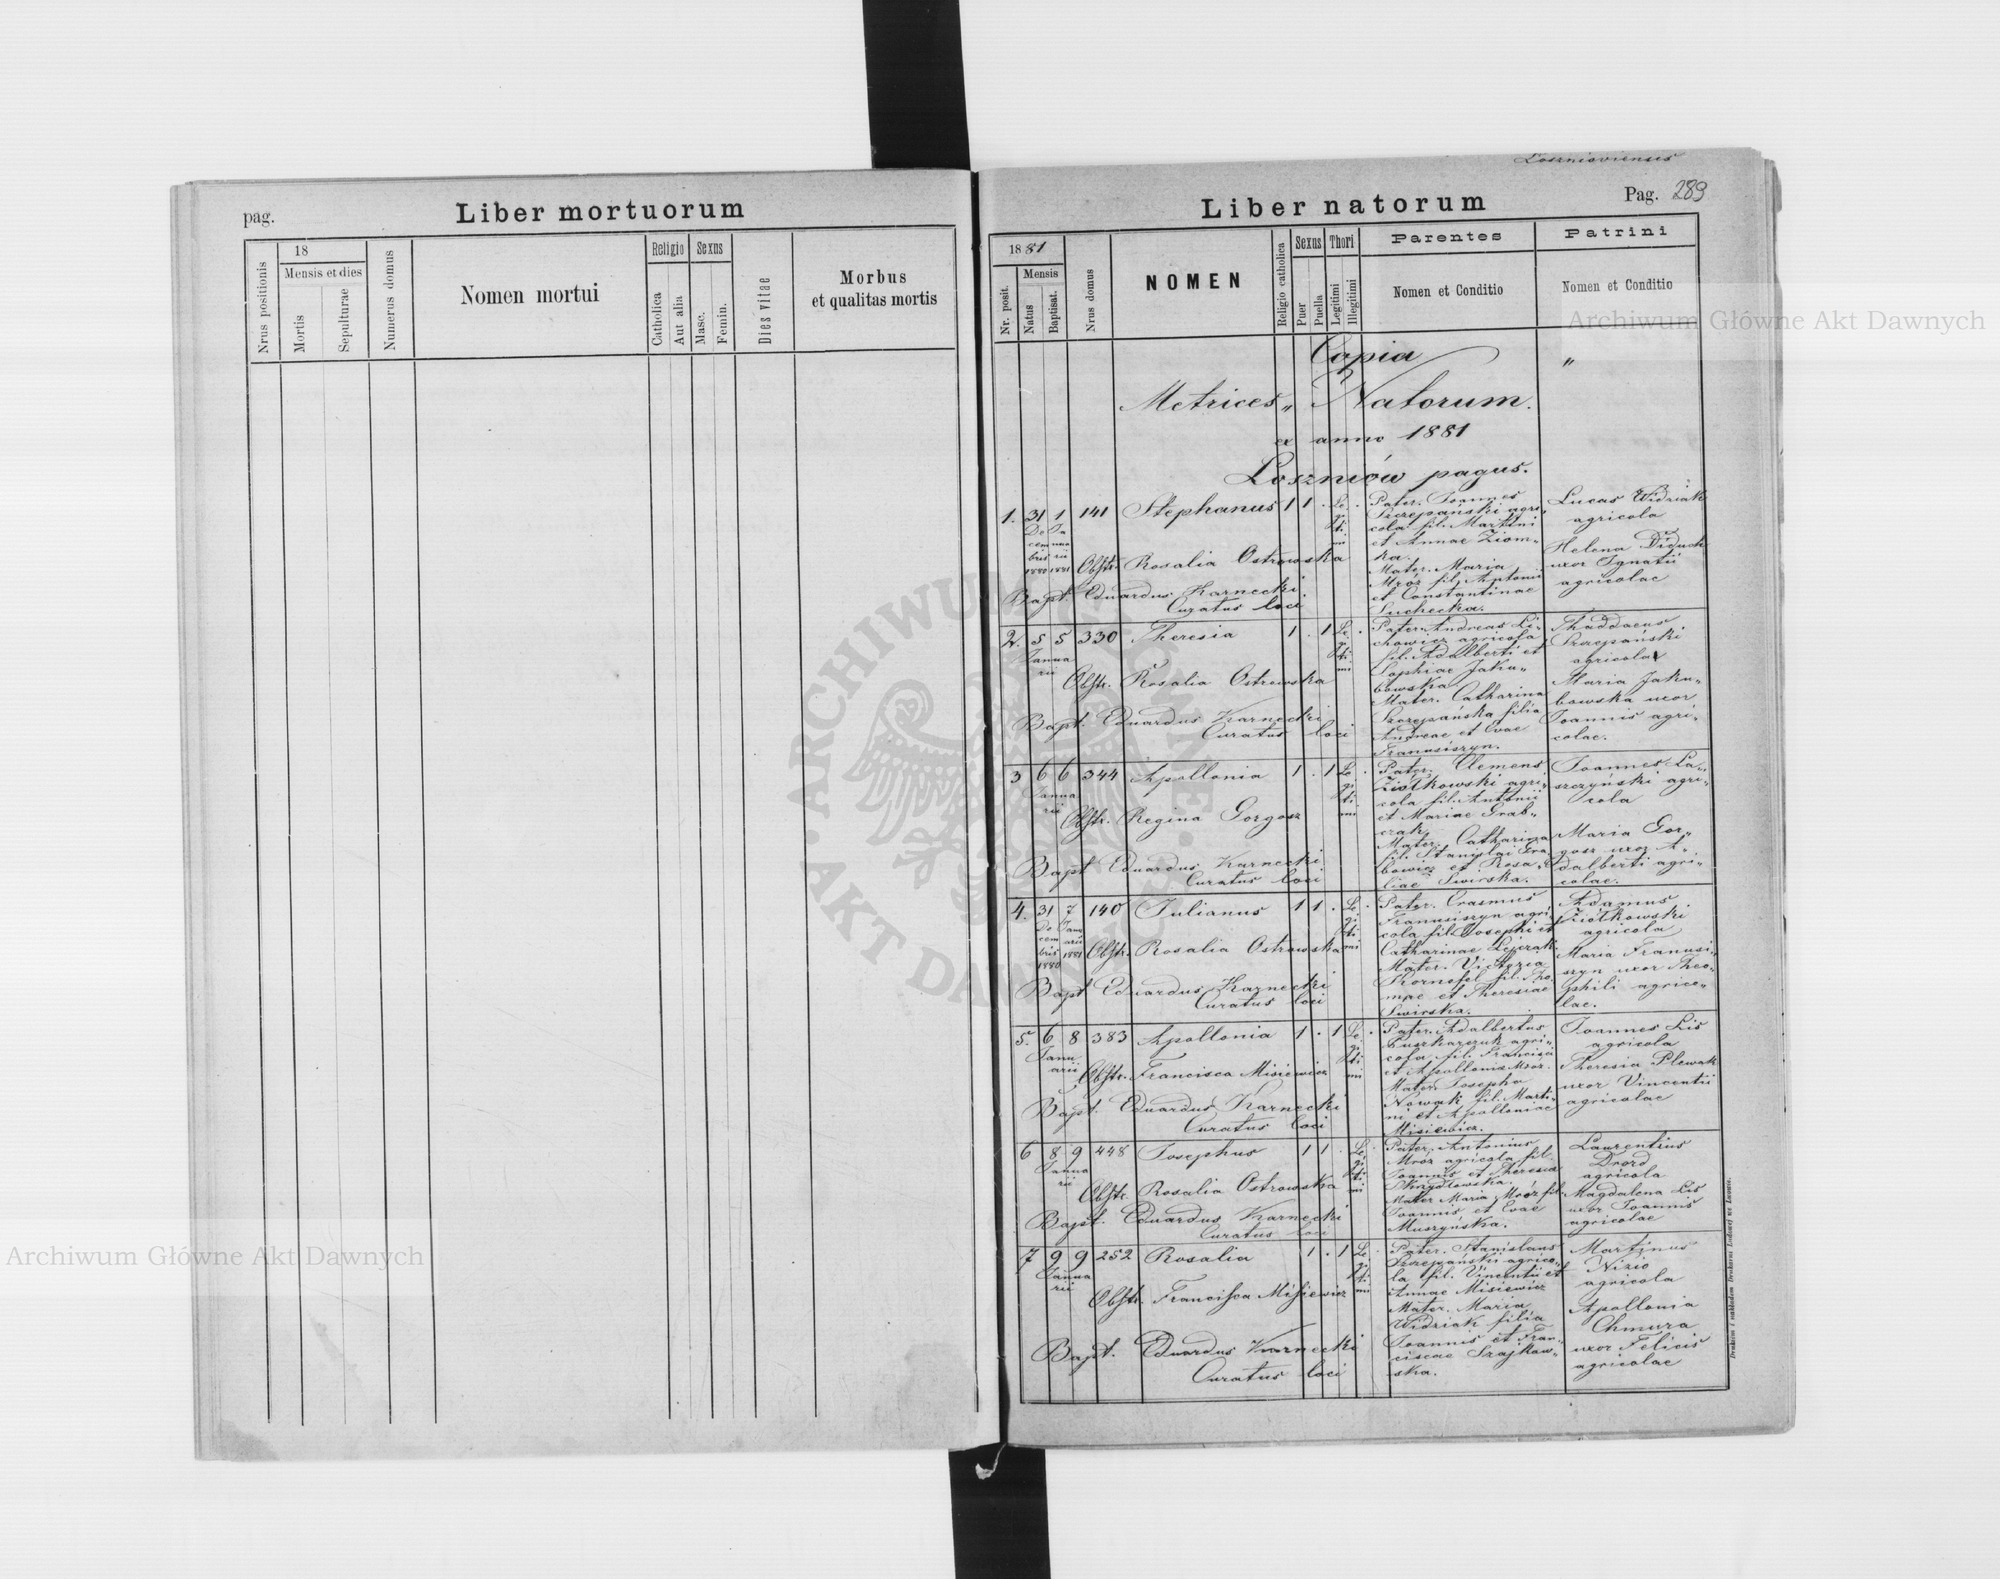 pag.
Liber mortuorum
Nrus positionis
18
Mensis et dies
Mortis
Sepulturae
Numerus domus
Nomen mortui
Religio
Catholica
Aut alia
Sexus
Masc.
Femin.
Dies vitae
Morbus
et qualitas mortis
Loszniowiensis
Liber natorum
Pag. 289
Nr. posit.
1881
Mensis
Natus
Baptisat.
Nrus domus
NOMEN
Religio catholica
Sexus
Puer
Puella
Thori
Legitimi
Illegitimi
Parentes
Nomen et Conditio
Patrini
Nomen et Conditio
Copia "
Metrices „ Natorum.
ex anno 1881
Loszniów pagus.
1. 31 1 141 Stephanus 1 1 .
De Ja
cem nua
bris rii
1880 1881
Le
gi
ti
mi
Obstr. Rosalia Ostrowska
Bapt. Eduardus Karnecki
Curatus loci
Pater. Joannes
Szczepański agri„
cola fil. Martini
et Annae Ziom„
ka.
Mater. Maria
Mróz fil. Antonii
et Constantinae
Suchecka.
Lucas Widziak
agricola
Helena Diduch
uxor Ignatii
agricolae
2. 5 5 330 Theresia 1 . 1
Janua
rii
Le
gi
ti
mi
Obstr. Rosalia Ostrowska
Bapt. Eduardus Karnecki
Curatus loci
Pater. Andreas Li„
chowicz agricola
fil. Adalberti et
Sophiae Jaku„
bowska
Mater. Catharina
Szczepańska filia
Andreae et Evae
Franusiszyn.
Thaddaeus
Szczepański
agricola
Maria Jaku„
bowska uxor
Joannis agri„
colae.
3 6 6 344 Apollonia 1 . 1
Janua
rii
Le
gi
ti
mi
Obstr. Regina Gorgosz
Bapt Eduardus Karnecki
Curatus loci
Pater. Clemens
Ziółkowski agri„
cola fil. Antonii
et Mariae Grab„
czak
Mater. Catharina
fil. Stanislai Gra
bowicz et Rosa„
liae Swirska.
Joannes La„
szczyński agri„
cola
Maria Gor„
gosz uxor A„
dalberti agri„
colae.
4. 31 7 140 Julianus 1 1 .
De Janu
cem arii
bris 1881
1880
Le
gi
ti
mi
Obstr. Rosalia Ostrowska
Bapt Eduardus Karnecki
Curatus loci
Pater. Erasmus
Franusiszyn agri„
cola fil. Josephi et
Catharinae
Mater. Victoria
Kornefel fil. Tho
mae et Theresiae
Swirska.
Adamus
Ziółkowski
agricola
Maria Franusi„
szyn uxor Theo„
phili agrico„
lae.
5. 6 8 383 Apollonia 1 . 1
Janu
arii
Le
gi
ti
mi
Obstr. Francisca Misiewicz
Bapt. Eduardus Karnecki
Curatus loci
Pater. Adalbertus
Puszkarczuk agri„
cola fil. Francisci
et Apollonia Mróz.
Mater. Josepha
Nowak fil. Marti„
ni et Apolloniae
Misiewicz.
Joannes Lis
agricola
Theresia Plewak
uxor Vincentii
agricolae
6 8 9 448 Josephus 1 1 .
Janua
rii
Le
gi
ti
mi
Obstr. Rosalia Ostrowska
Bapt. Eduardus Karnecki
Curatus loci
Pater. Antonius
Mróz agricola fil.
Joannis et Theresia
Skrzydłowska.
Mater Maria Mróz fil.
Joannis et Evae
Muszyńska.
Laurentius
Drozd
agricola
Magdalena Lis
uxor Joannis
agricolae
7 9 9 252 Rosalia 1 . 1
Janua
rii
Le
gi
ti
mi
Obstr. Francisca Misiewicz
Bapt. Eduardus Karnecki
Curatus loci
Pater. Stanislaus
Szczepański agrico„
la fil. Vincentii et
Annae Misiewicz
Mater. Maria
Widziak filia
Joannis et Fran„
ciscae Szajkow„
ska.
Martinus
Nizio
agricola
Apollonia
Chmura
uxor Felicis
agricolae
Drukiem i nakładem Drukarni Ludowej we Lwowie.
Archiwum Główne Akt Dawnych
Archiwum Główne Akt Dawnych
ARCHIWUM GŁÓWNE · AKT DAWNYCH ·